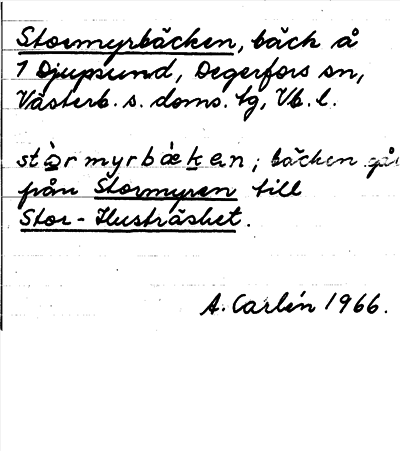 Stormyrbäcken, bäck å
1 Djupsund, Degerfors sn,
Västerb. s. doms. tg, Vb. l.
stò̱rmyrbæ̀ḵen; bäcken går
från Stormyren till
Stor-Ilusträsket.
A. Carlén 1966.